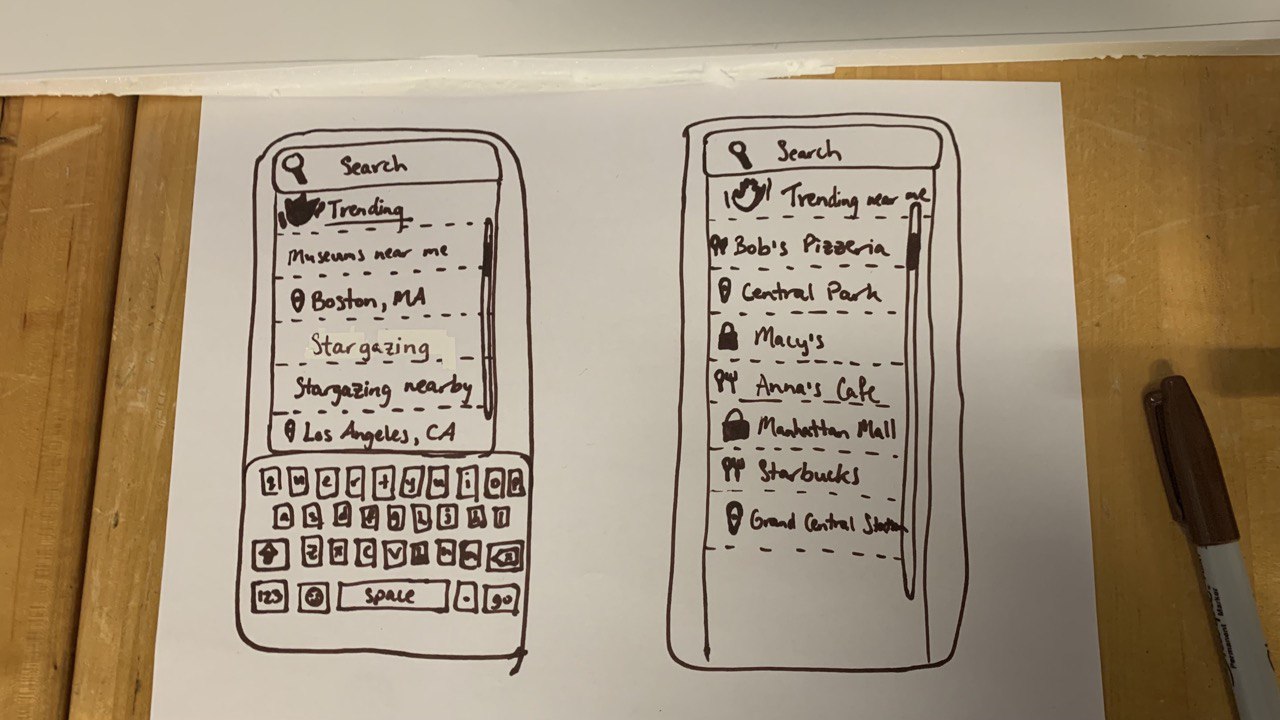 Search
Trending
Museums near me
Boston, MA
Stargazing
Stargazing nearby
Los Angeles, CA
z x c v
123 space . go
Search
Trending near me
Bob's Pizzeria
Central Park
Macy's
Anna's Cafe
Manhattan Mall
Starbucks
Grand Central Station
Permanent Marker